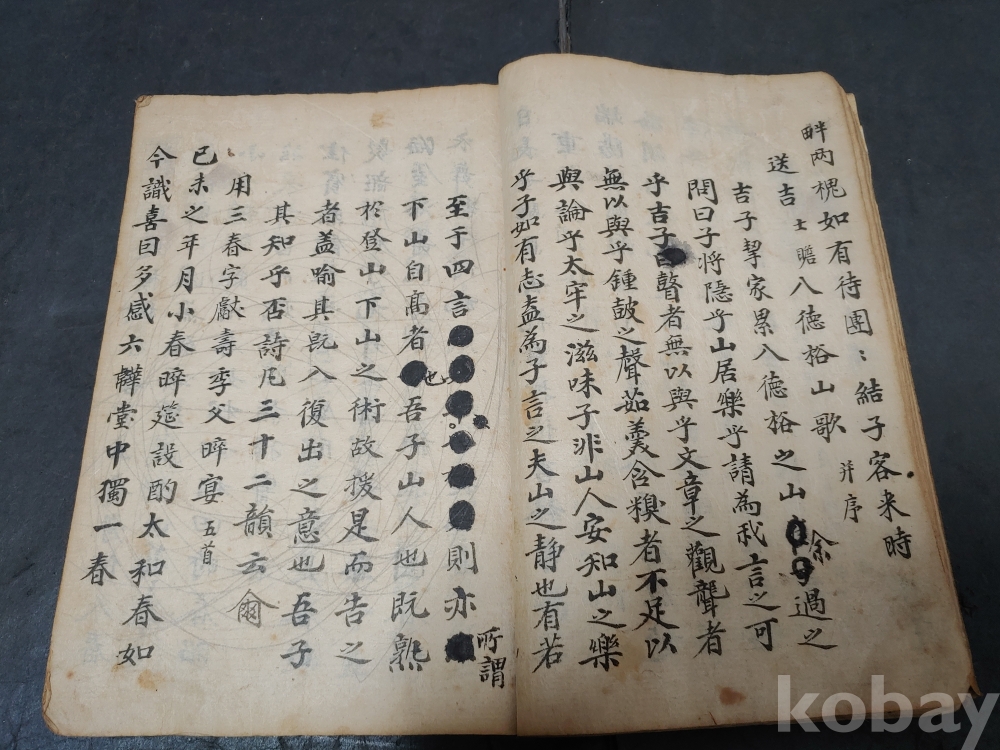 畔两槐如有待團：結子客来時
送吉士贍八德裕山歌 并序
吉子挈家累入德裕之山余過之
問曰子將隱乎山居樂乎請為我言之可
乎吉子曰瞽者無以與乎文章之觀聾者
無以與乎鍾皷之聲茹羹含糗者不足以
與論乎太牢之滋味子非山人安知山之樂
乎子如有志盍為子言之夫山之静也有若
至于四言則亦所謂
下山自髙者也吾子山人也既熟
於登山下山之術故援是而告之
者盖喻其既入復出之意也吾子
其知乎否詩凡三十二韻云爾
用三春字獻壽季父晬宴 五首
已未之年月小春晬筵設酌太和春如
今識喜曰多感六韡堂中獨一春
kobay